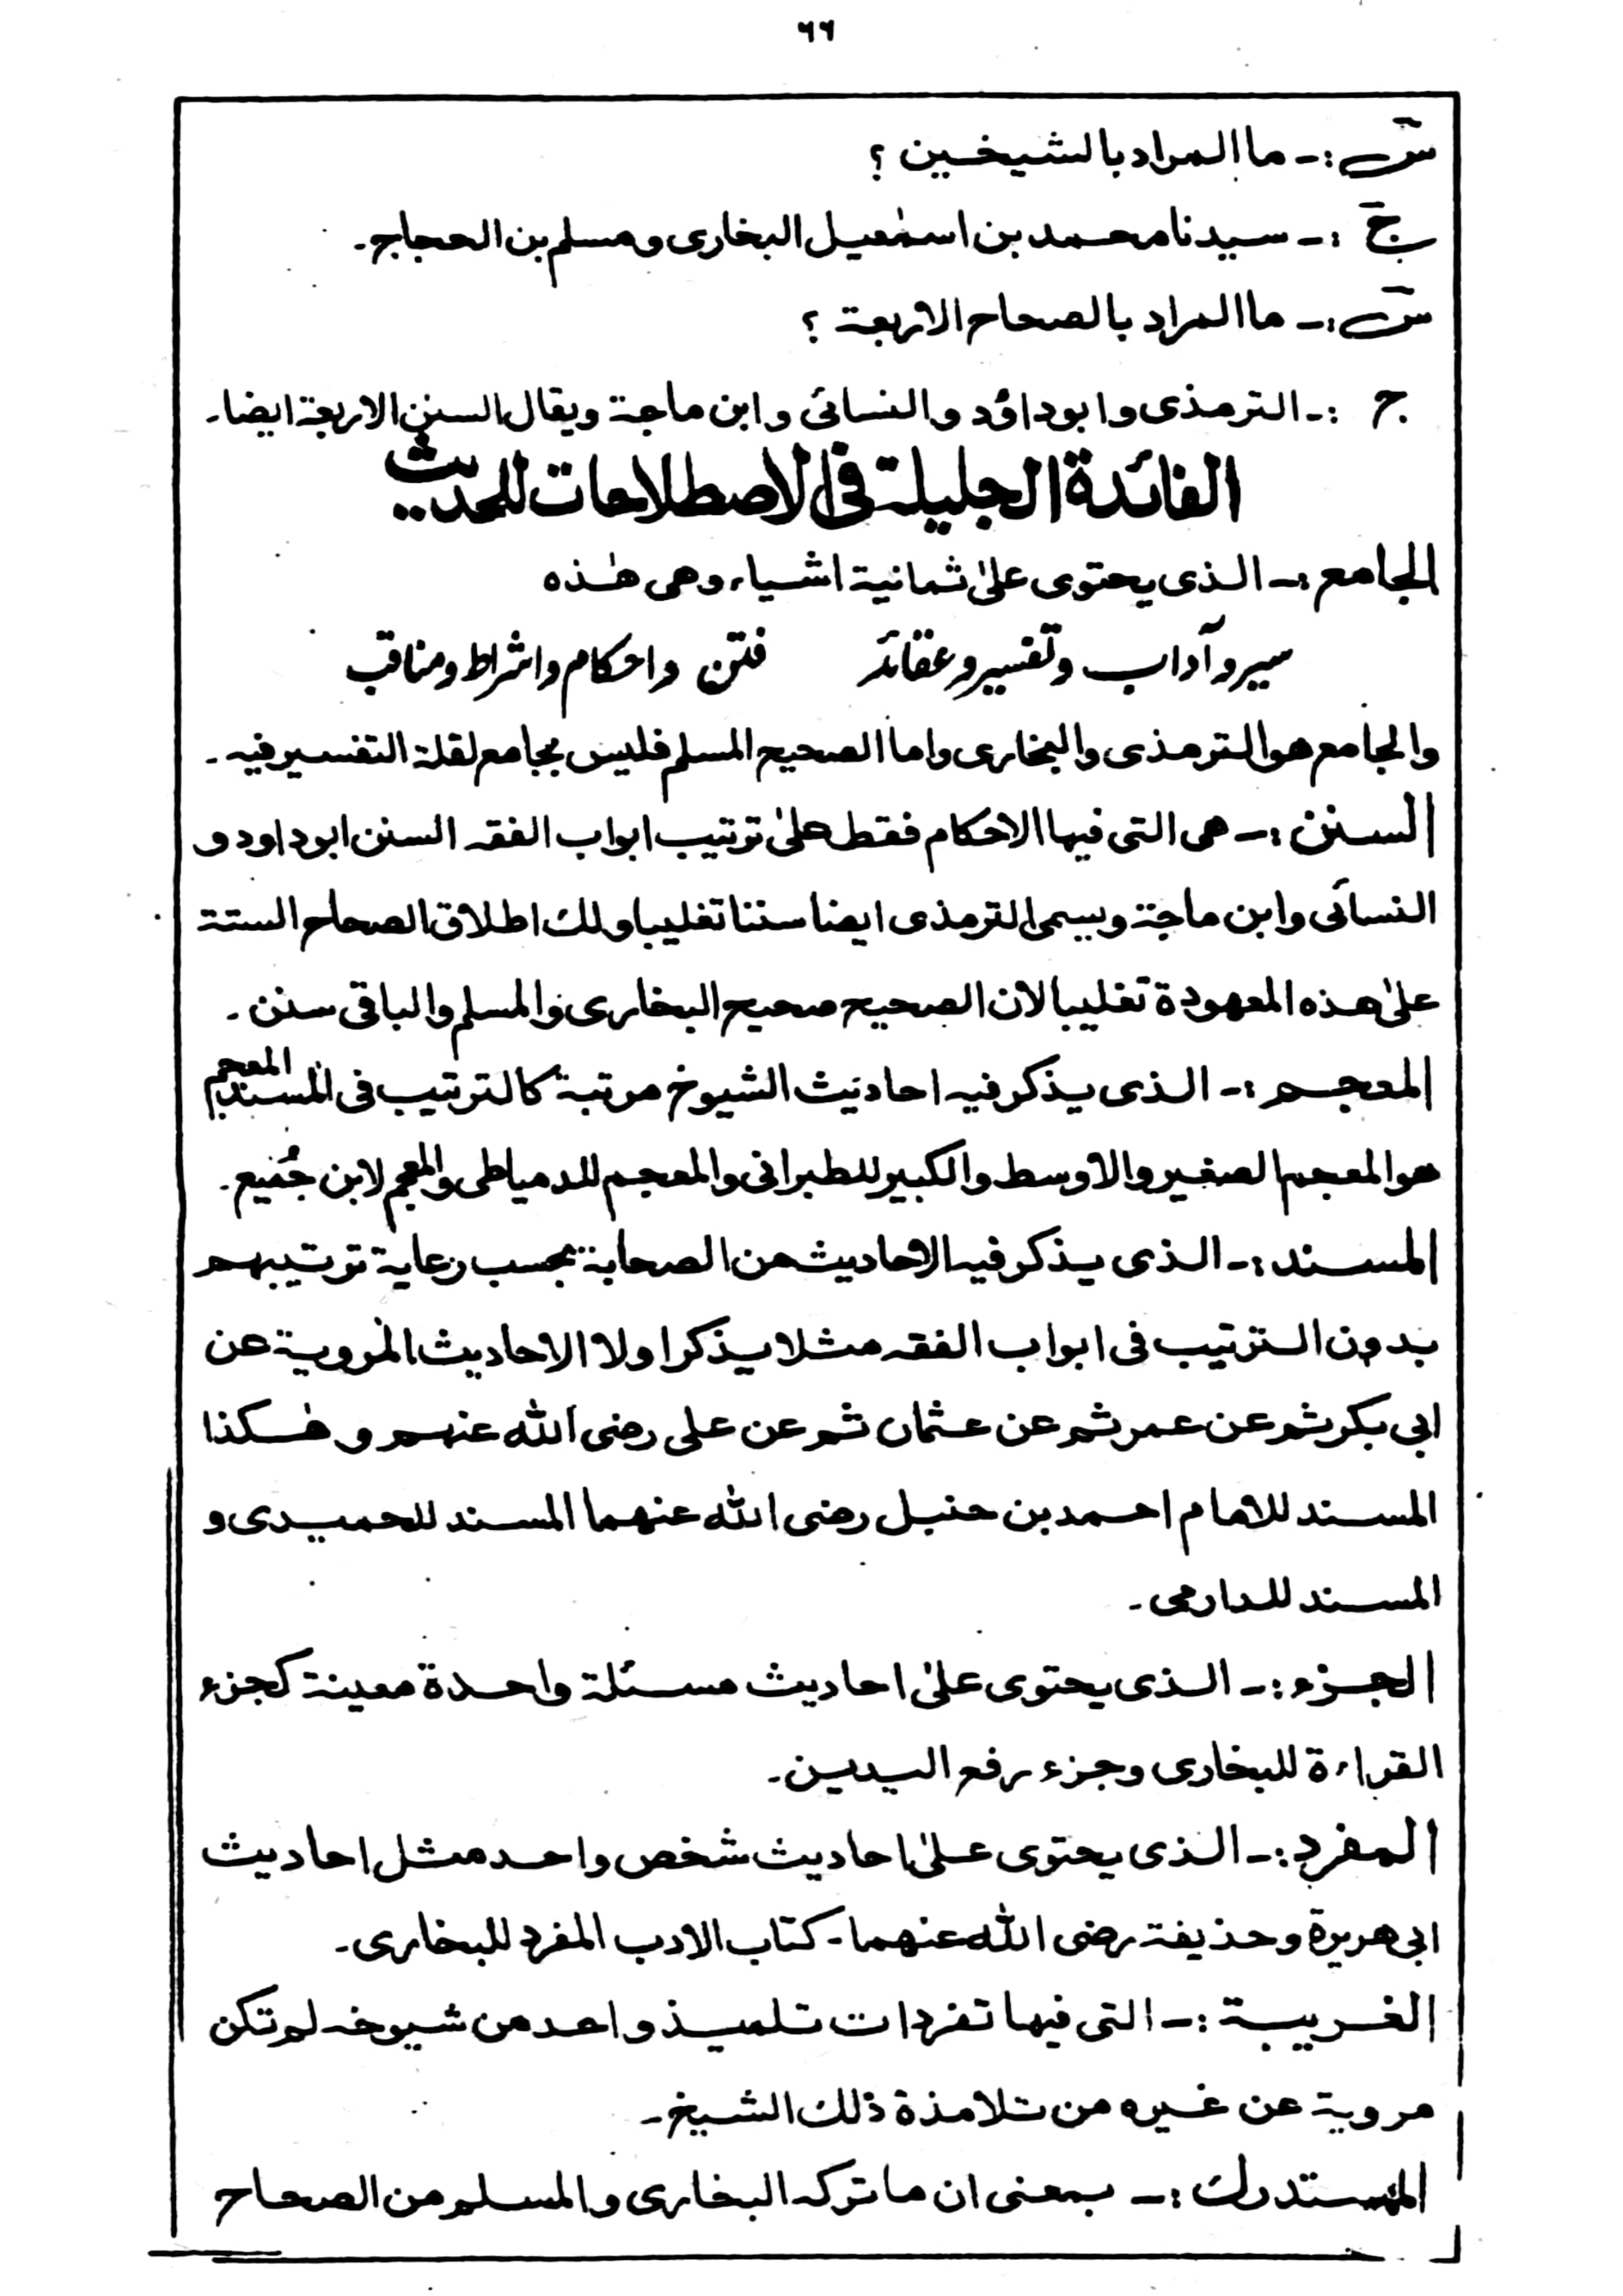 ٦٦
س :ـ ما المراد بالشيخين ؟
ج :ـ سيدنا محمد بن اسمٰعيل البخارى ومسلم بن الحجاج ـ
س :ـ ما المراد بالصحاح الاربعة ؟
ج :ـ الترمذى وابوداؤد والنسائى وابن ماجة ويقال السنن الاربعة ايضا ـ
الفائدة الجليلة فى الاصطلاحات للحديث
الجامع :ـ الذى يحتوى علىٰ ثمانية اشياء وهى هٰذه
سير وآداب وتفسير وعقائد فتن واحكام واشراط ومناقب
والجامع هو الترمذى والبخارى واما الصحيح المسلم فليس بجامع لقلة التفسير فيه ـ
السنن :ـ هى التى فيها الاحكام فقط علىٰ ترتيب ابواب الفقه السنن ابوداود و
النسائى وابن ماجة ويسمى الترمذى ايضا سننا تغليبا ولك اطلاق الصحاح الستة
علىٰ هذه المعهودة تغليبا لان الصحيح صحيح البخارى والمسلم والباقى سنن ـ
المعجم :ـ الذى يذكر فيه احاديث الشيوخ مرتبة كالترتيب فى المسند المعجم
هو المعجم الصغير والاوسط والكبير للطبرانى والمعجم للدمياطى والمعجم لابن جُميع ـ
المسند :ـ الذى يذكر فيه الاحاديث من الصحابة بحسب رعاية ترتيبهم
بدون الترتيب فى ابواب الفقه مثلا يذكر اولا الاحاديث المروية عن
ابى بكر ثم عن عمر ثم عن عثمان ثم عن على رضى الله عنهم وهٰكذا
المسند للامام احمد بن حنبل رضى الله عنهما المسند للحميدى و
المسند للدارمى ـ
الجزء :ـ الذى يحتوى علىٰ احاديث مسئلة واحدة معينة كجزء
القراءة للبخارى وجزء رفع اليدين ـ
المفرد :ـ الذى يحتوى علىٰ احاديث شخص واحد مثل احاديث
ابى هريرة وحذيفة رضى الله عنهما ـ كتاب الادب المفرد للبخارى ـ
الغريبة :ـ التى فيها تفردات تلميذ واحد من شيوخه لم تكن
مروية عن غيره من تلامذة ذلك الشيخ ـ
المستدرك :ـ بمعنى ان ما تركه البخارى والمسلم من الصحاح